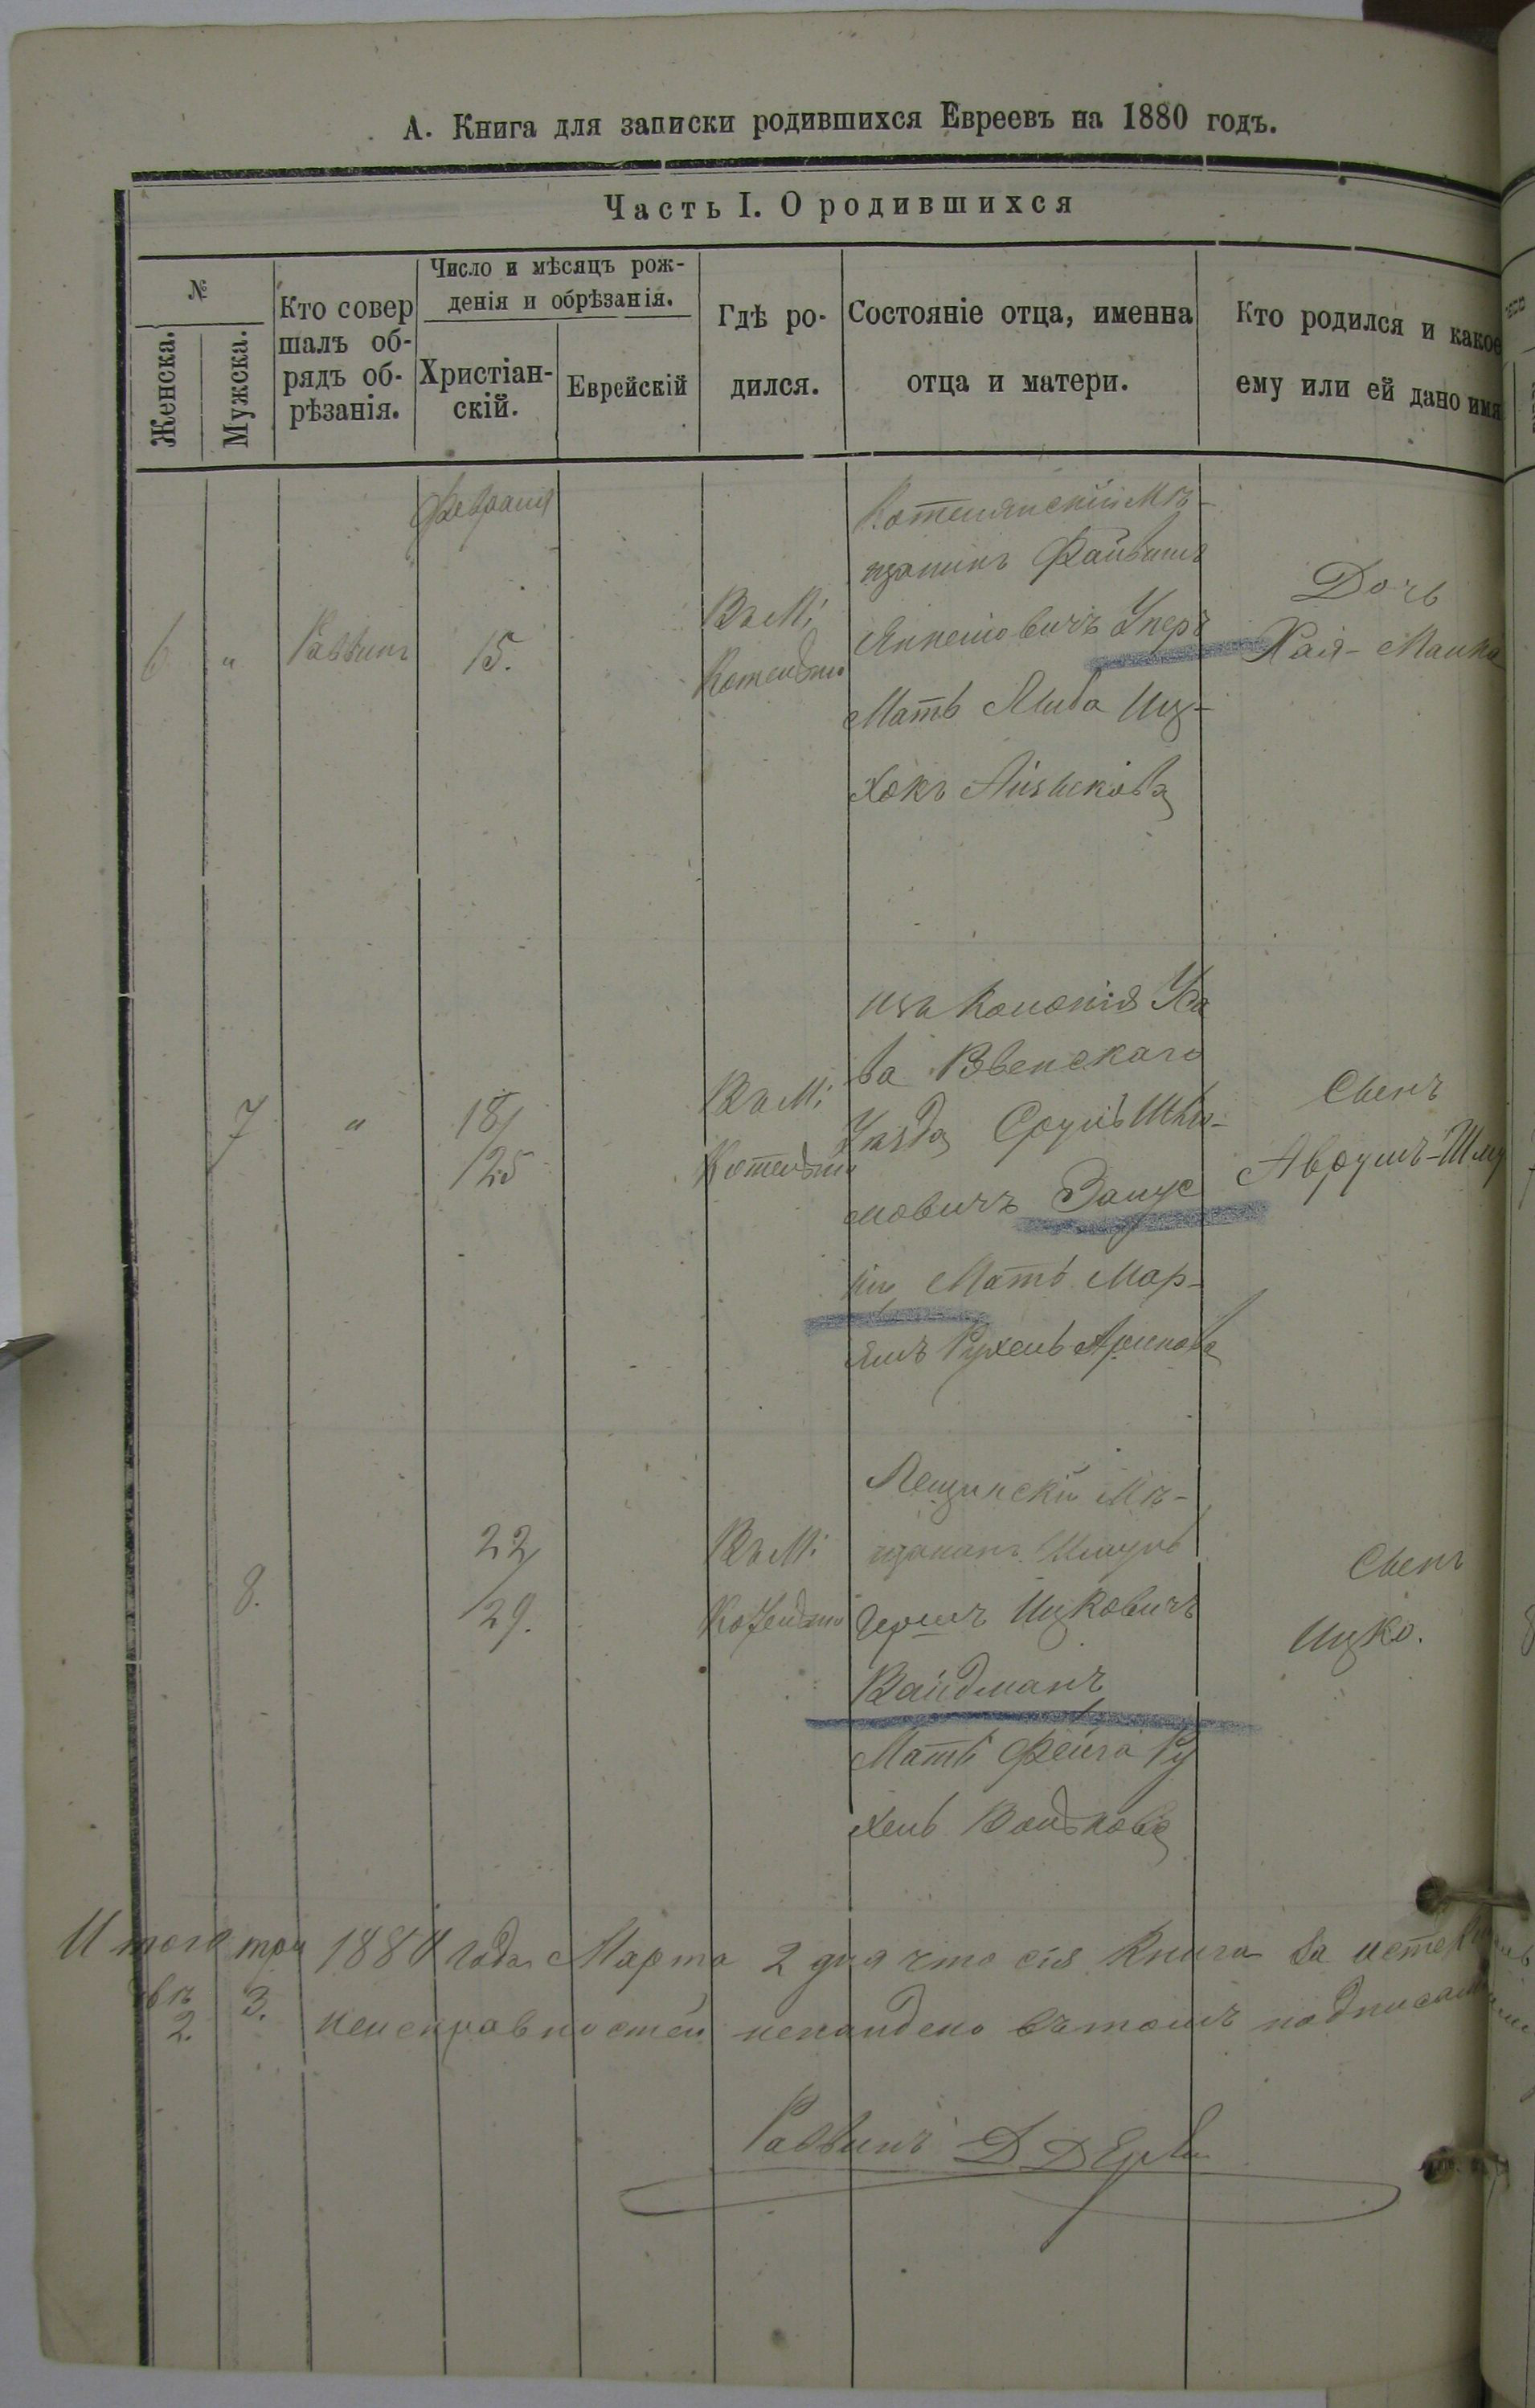 А. Книга для записки родившихся Евреевъ на 1880 годъ.
Часть I. О родившихся
№
Женска.
Мужска.
Кто совер
шалъ об-
рядъ об-
рѣзанія.
Число и мѣсяцъ рож-
денія и обрѣзанія.
Христіан-
скій.
Еврейскій
Гдѣ ро-
дился.
Состояніе отца, именна
отца и матери.
Кто родился и какое
ему или ей дано имя
Февраля
6
"
Раввинъ
15.
Въ М:
Котельню
Котелянскій Мѣ-
щанинъ Файвишъ
Янкелювичъ Укеръ
Мать Либа Иц-
хокъ
Дочь
Хая-Малка
7
"
18/
/25
Въ М:
Котельни
изъ Колонія
ва Ввенскаго
Уѣзда Сруль
мовичъ Запус
Мать Мар-
ямъ Рухель
Сынъ
Аврумъ-Шму
8.
22/
/29.
Въ М:
Котельню
Лещинскій Мѣ-
щанинъ
Гершъ Ицковичъ
Вайдманъ
Мать Фейга Ру
хель Волькова
Сынъ
Ицко.
Итого три 1880 года Марта 2 дня что сія Книга за истек
двѣ
2.
3.
неисправностей ненайдено въ томъ подписали
Раввинъ Д